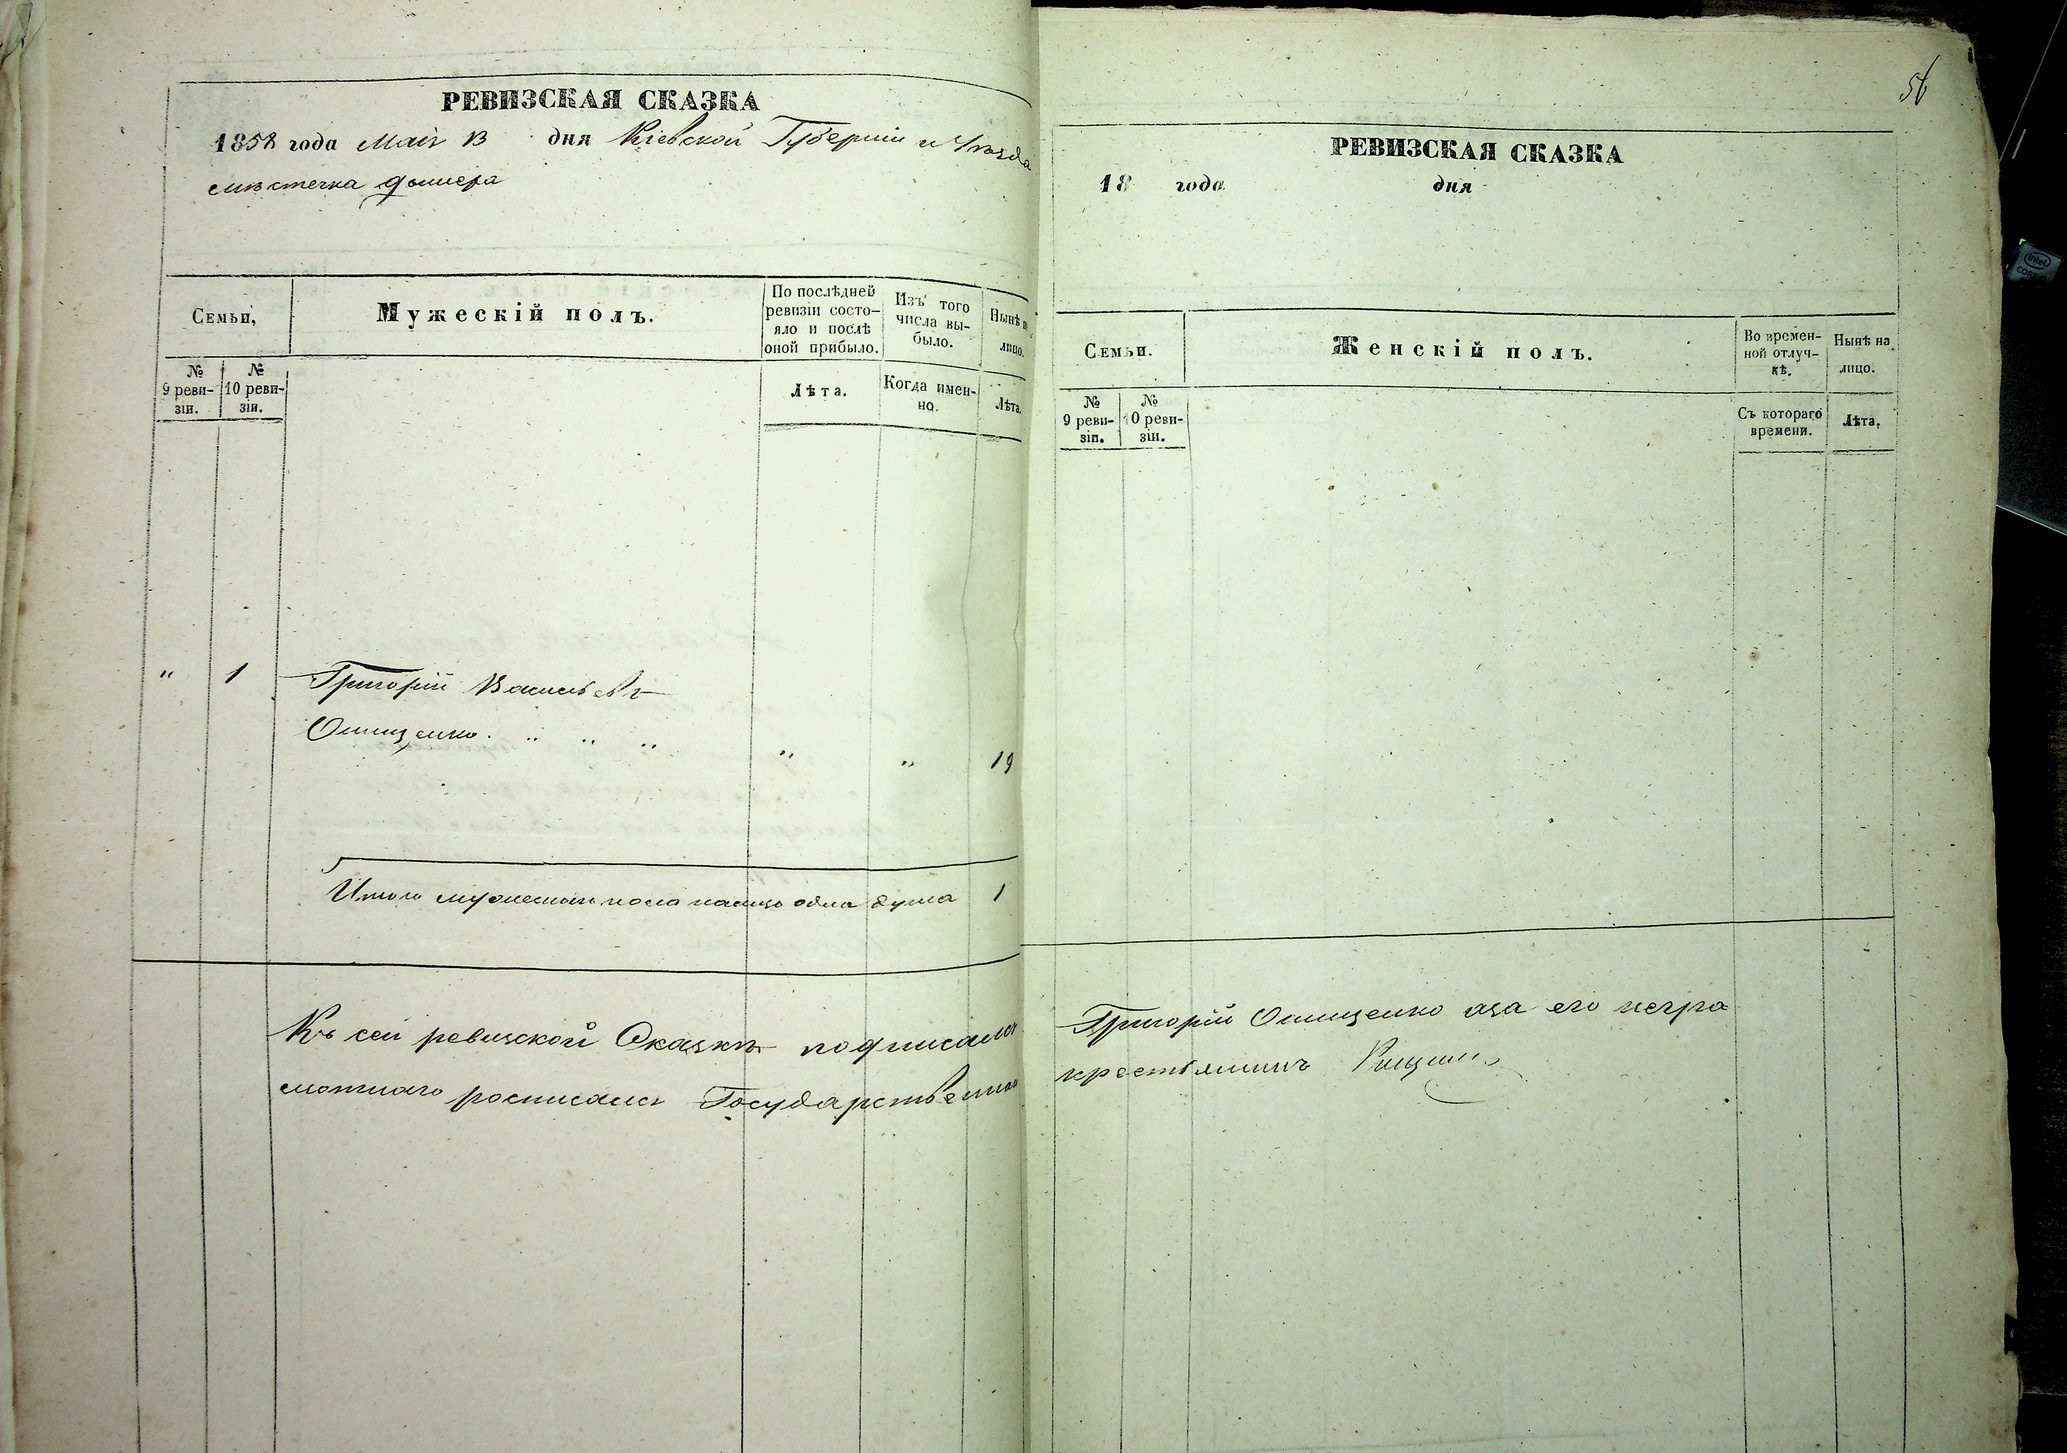 РЕВИЗСКАЯ СКАЗКА
1858 года Мая 13 дня Кіевской Губерніи и Уѣзда
мѣстечка Дымера
Семьи,
Мужескій полъ.
По послѣдней
ревизіи состо-
яло и послѣ
оной прибыло.
Изъ того
числа вы-
было.
Нынѣ на
лицо.
№
9 реви-
зіи.
№
10 реви-
зіи.
Лѣта.
Когда имен-
но.
Лѣта.
" 1 Григорій Васильевъ
Онищенко. " " " " " 19
Итого мужеска пола налицо одна душа 1
Къ сей ревизской Сказкѣ подписался
мотнаго росписался Государственной
56
РЕВИЗСКАЯ СКАЗКА
18 года дня
Семьи.
Женскій полъ.
Во времен-
ной отлуч-
кѣ.
Нынѣ на
лицо.
№
9 реви-
зіи.
№
10 реви-
зіи.
Съ котораго
времени.
Лѣта.
Григорій Онищенко аза его негра
крестьянинъ